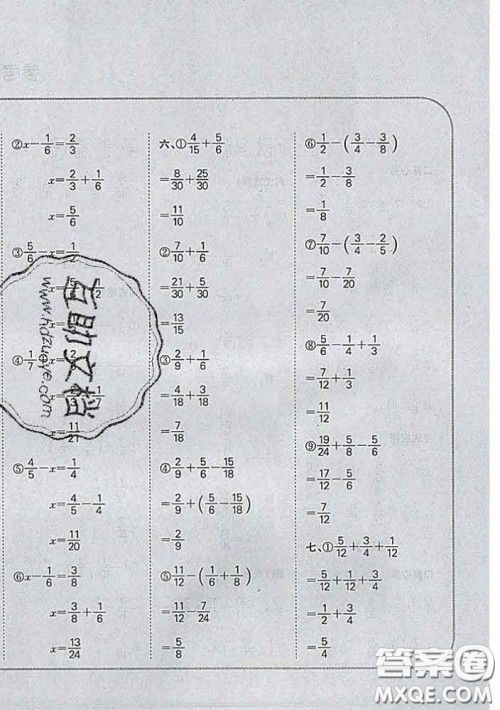 ②x-1/6=2/3
x=2/3+1/6
x=5/6
③5/6-x=1/2
④1/7
x=11/21
⑤4/5-x=1/4
x=4/5-1/4
x=11/20
⑥x-1/6=3/8
x=3/8+1/6
x=13/24
六、①4/15+5/6
=8/30+25/30
=11/10
②7/10+1/6
=21/30+5/30
=13/15
③2/9+1/6
=4/18+3/18
=7/18
④2/9+5/6-15/18
=2/9+(5/6-15/18)
=2/9
⑤11/12-(1/6+1/8)
=11/12-7/24
=5/8
⑥1/2-(3/4-3/8)
=1/2-3/8
=1/8
⑦7/10-(3/4-2/5)
=7/10-7/20
=7/20
⑧5/6-1/4+1/3
=7/12+1/3
=11/12
⑨19/24+5/8-5/6
=17/12-5/6
=7/12
七、①5/12+3/4+1/12
=5/12+1/12+3/4
=1/2+3/4
=5/4
互助文档
www.hdzuoye.com
答案圈
MXQE.COM